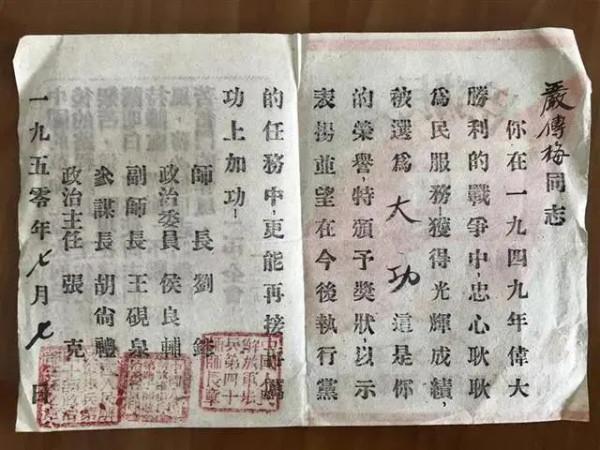 嚴傳梅同志
你在一九四九年偉大
勝利的戰爭中,忠心耿耿
爲民服務,獲得光輝成績,
被選爲 大功 這是你
的榮譽,特頒予獎狀,以示
表揚並望在今後執行黨
的任務中,更能再接再厲
功上加功!
師長劉
政治委員侯良輔
副師長王硯泉
參謀長胡尚禮
政治主任張克
一九五零年七月七日